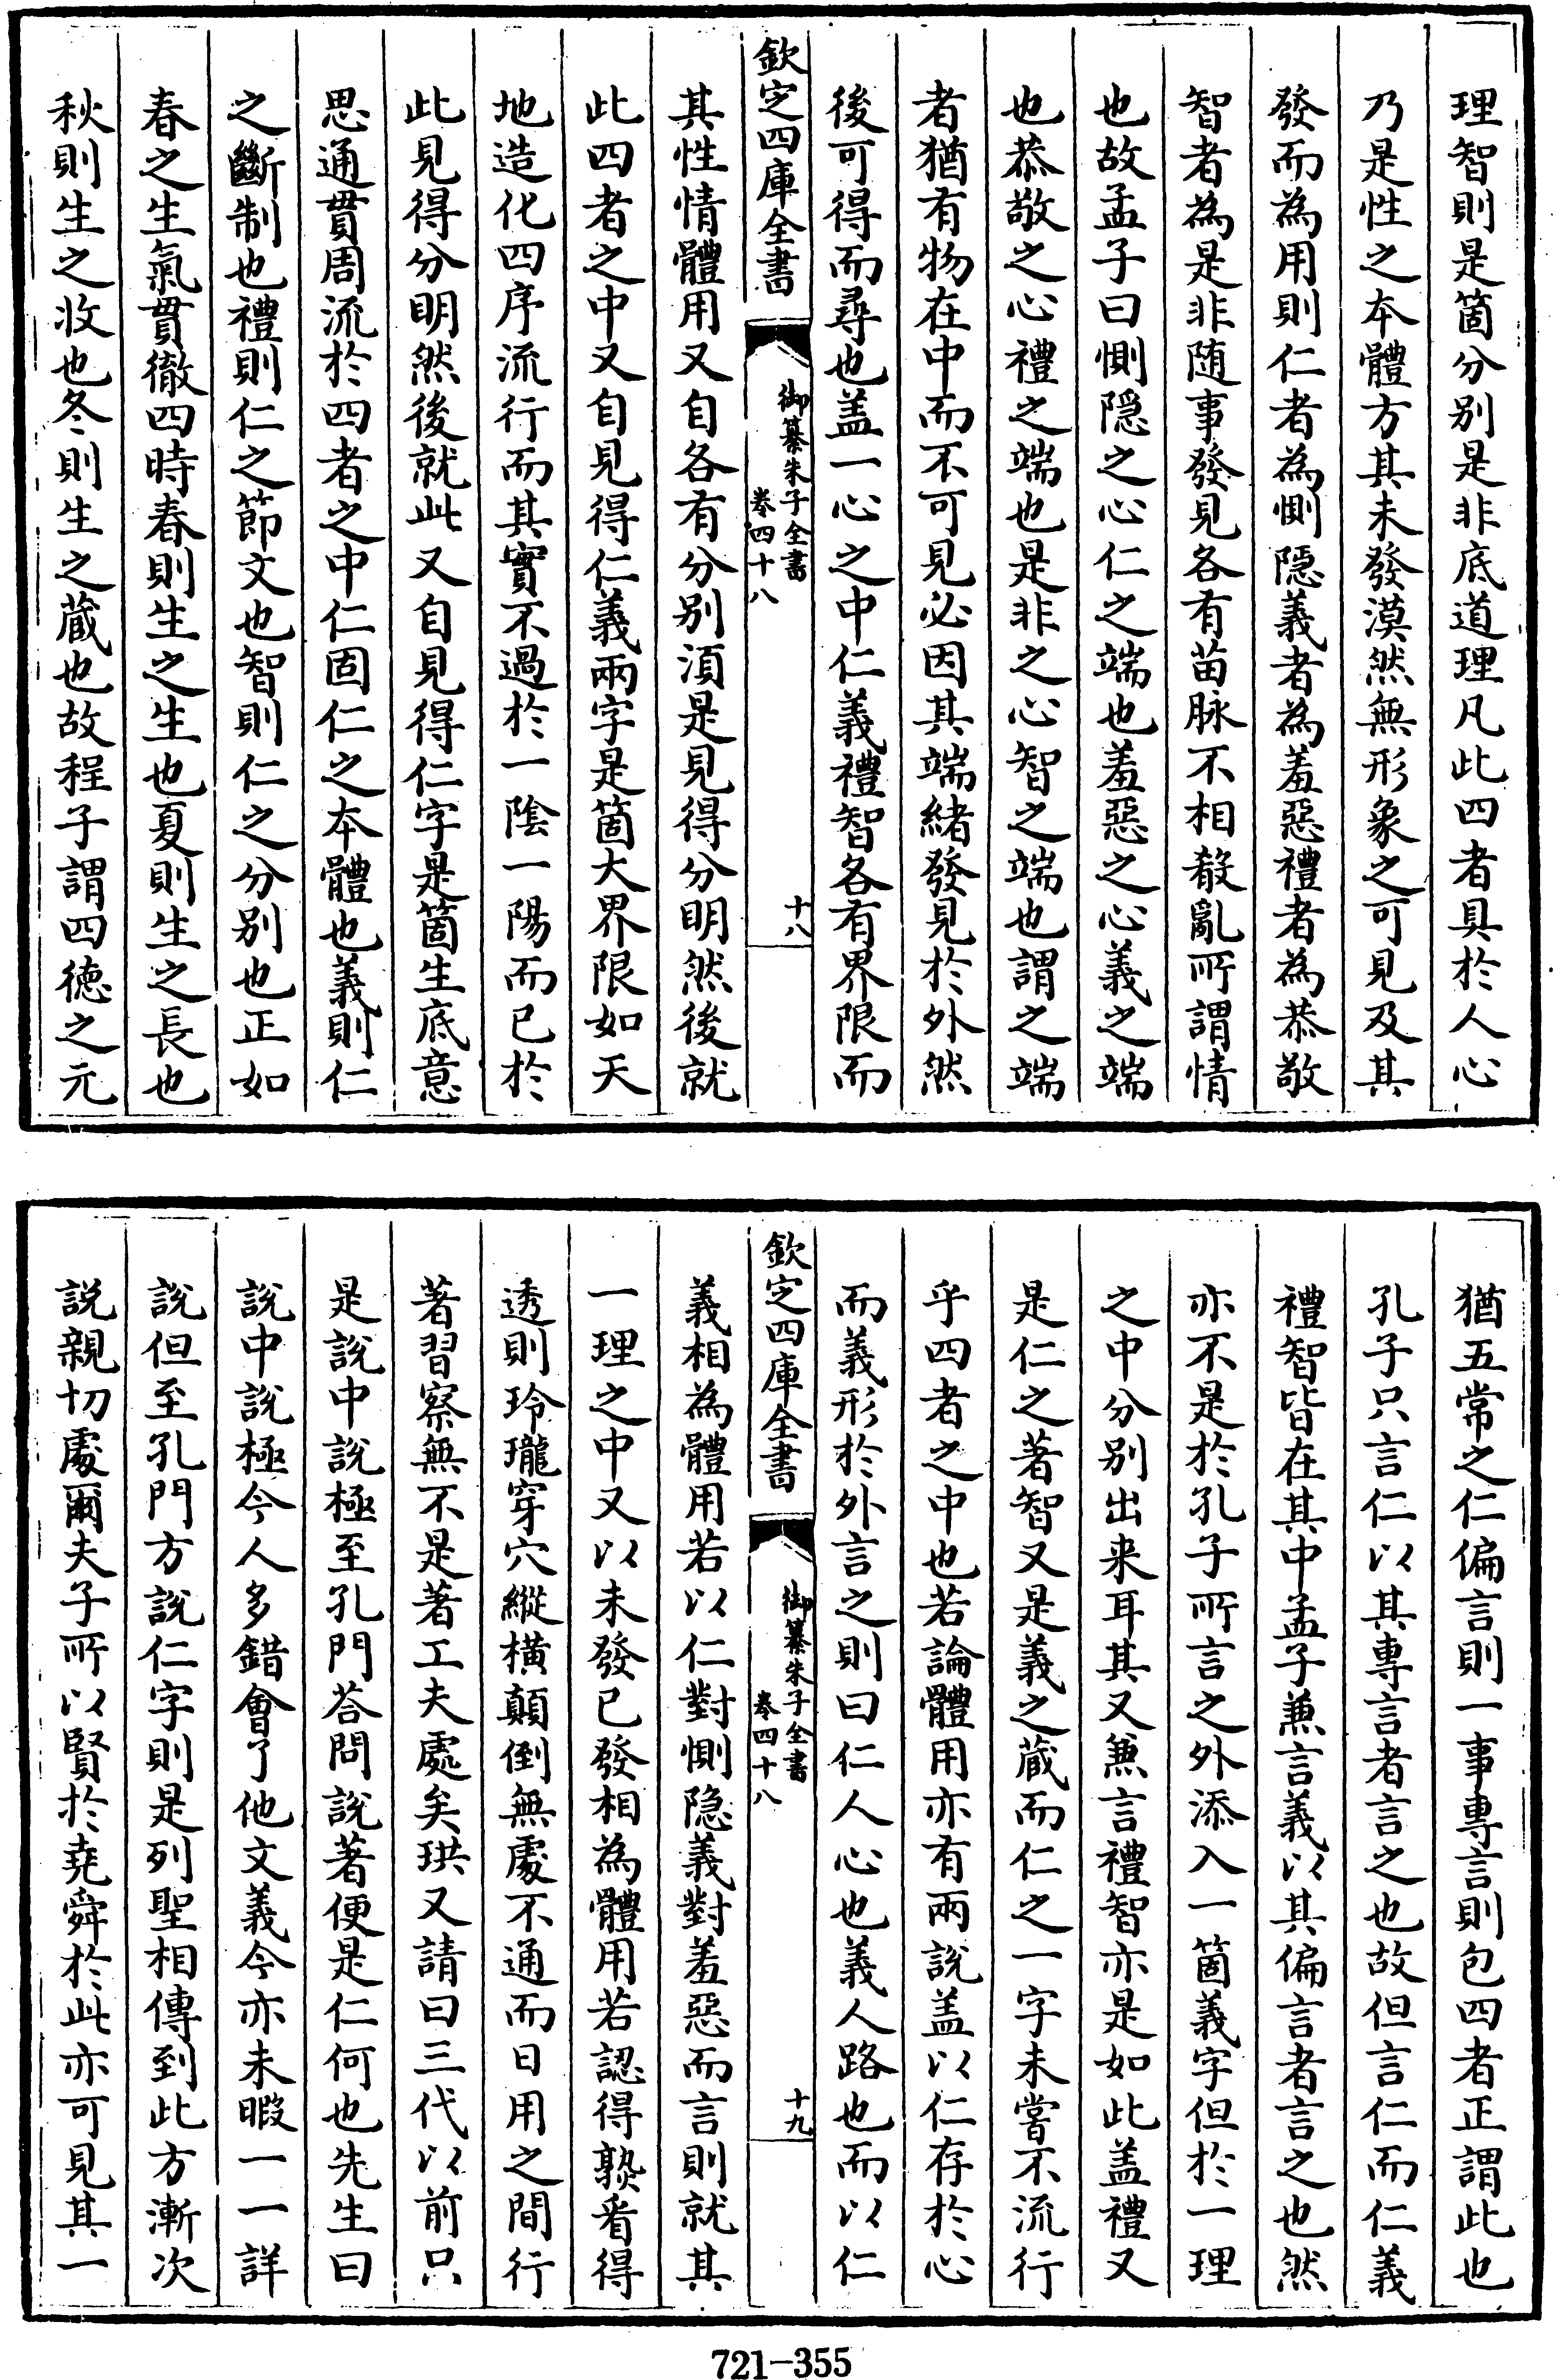 理智則是箇分别是非底道理凡此四者具於人心
乃是性之本體方其未發漠然無形象之可見及其
發而為用則仁者為惻隠義者為羞惡禮者為恭敬
智者為是非随事發見各有苗脉不相殽亂所謂情
也故孟子曰惻隠之心仁之端也羞惡之心義之端
也恭敬之心禮之端也是非之心智之端也謂之端
者猶有物在中而不可見必因其端緒發見於外然
後可得而尋也盖一心之中仁義禮智各有界限而
欽定四庫全書
御纂朱子全書
卷四十八
十八
其性情體用又自各有分别須是見得分明然後就
此四者之中又自見得仁義兩字是箇大界限如天
地造化四序流行而其實不過於一陰一陽而已於
此見得分明然後就此又自見得仁字是箇生底意
思通貫周流於四者之中仁固仁之本體也義則仁
之斷制也禮則仁之節文也智則仁之分别也正如
春之生氣貫徹四時春則生之生也夏則生之長也
秋則生之收也冬則生之蔵也故程子謂四徳之元
猶五常之仁偏言則一事專言則包四者正謂此也
孔子只言仁以其專言者言之也故但言仁而仁義
禮智皆在其中孟子兼言義以其偏言者言之也然
亦不是於孔子所言之外添入一箇義字但於一理
之中分别出来耳其又兼言禮智亦是如此盖禮又
是仁之著智又是義之蔵而仁之一字未嘗不流行
乎四者之中也若論體用亦有兩說盖以仁存於心
而義形於外言之則曰仁人心也義人路也而以仁
欽定四庫全書
御纂朱子全書
卷四十八
十九
義相為體用若以仁對惻隠義對羞惡而言則就其
一理之中又以未發已發相為體用若認得熟看得
透則玲瓏穿穴縱横顛倒無處不通而日用之間行
著習察無不是著工夫處矣珙又請曰三代以前只
是說中說極至孔門荅問說著便是仁何也先生曰
說中說極今人多錯會了他文義今亦未暇一一詳
說但至孔門方說仁字則是列聖相傳到此方漸次
說親切處爾夫子所以賢於堯舜於此亦可見其一
721-355